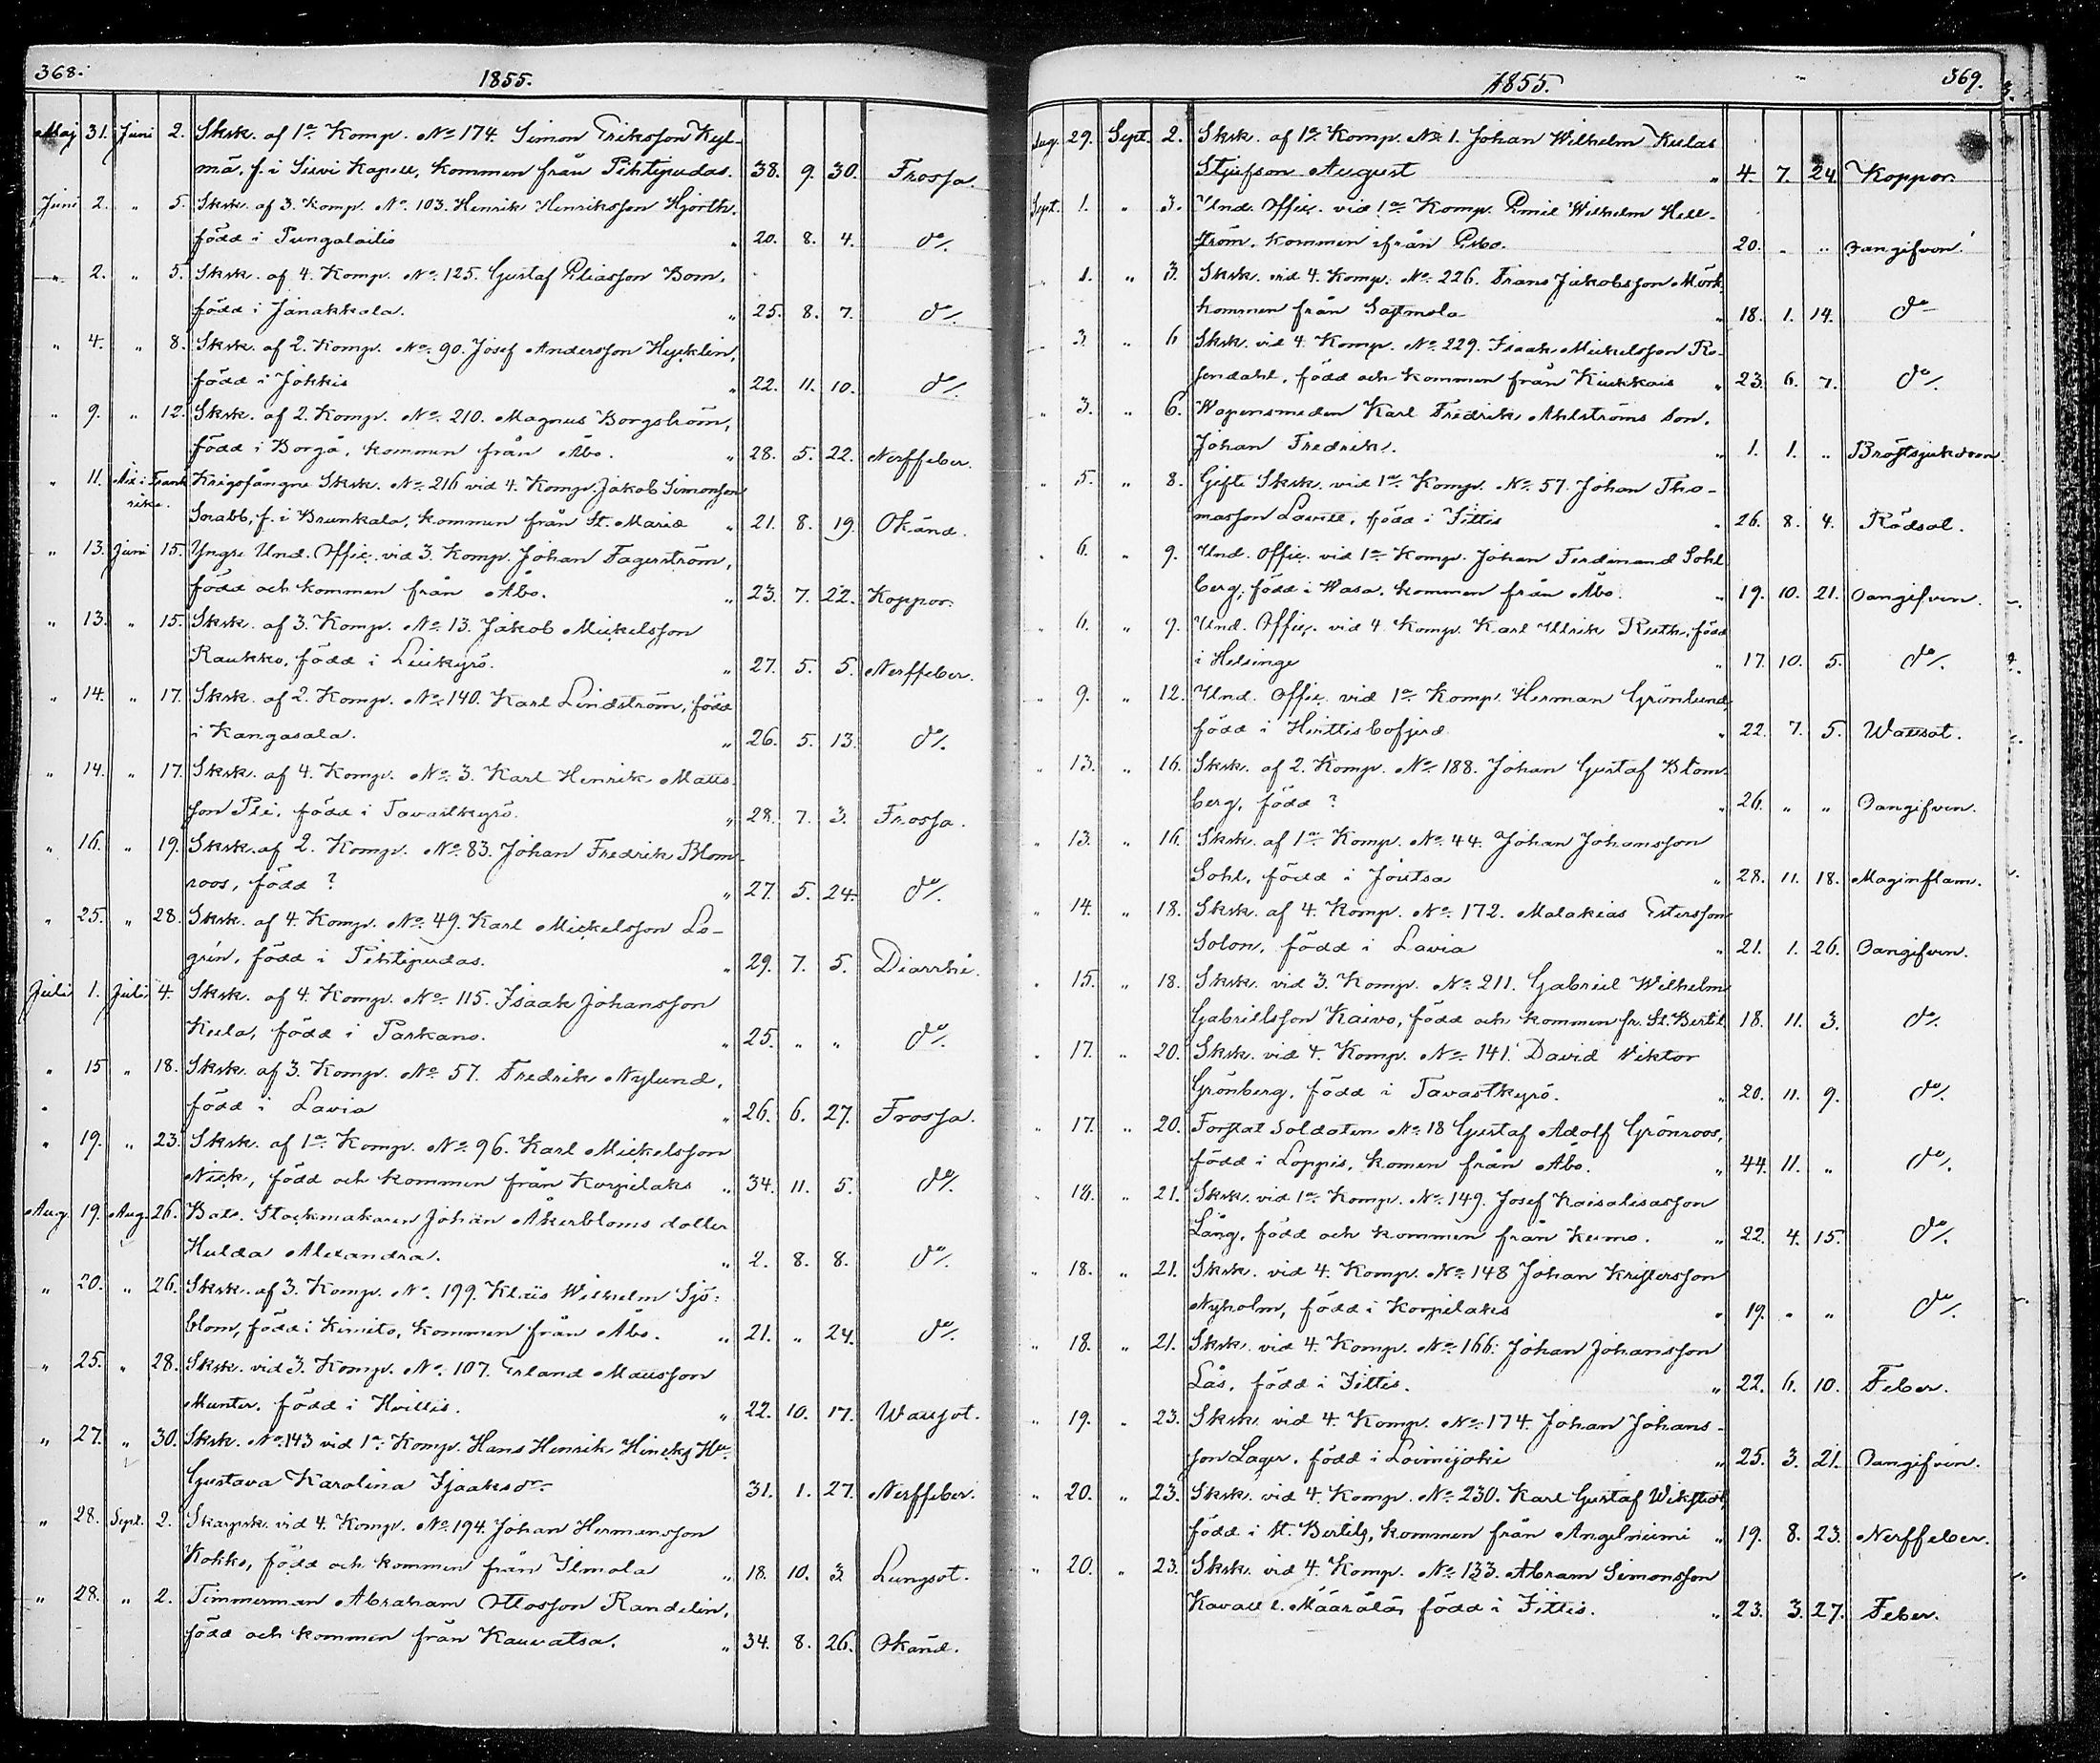 368.
1855.
Maj 31. Juni 2. Sksk. af 1a Komp. No 174. Simon Eriksson Kyl-
mä, f. i Sievi Kapell, kommen från Pihtipudas. 38. 9. 30. Frossa.
Juni 2. " 5. Sksk. af 3. Komp. No 103. Henrik Henriksson Hjorth,
född i Pungalaitio " 20. 8. 4. do/.
" 2. " 5. Sksk. af 4. Komp. No 125. Gustaf Eliasson Bom,
född i Janakkala. " 25. 8. 7. do/.
" 4. " 8. Sksk. af 2. Komp. No 90. Josef Andersson Hycklin,
född i Jokkis " 22. 11. 10. do/.
" 9. " 12. Sksk. af 2. Komp. No 210. Magnus Borgström,
född i Borgå, kommen från Åbo. " 28. 5. 22. Nerffeber.
" 11. Aix i Frank- Krigsfångne Sksk. No 216 vid 4. Komp. Jakob Simonsson
rike. Snabb, f. i Brunkala, kommen från St. Marie " 21. 8. 19. Okänd.
" 13. Juni 15. Yngre Und. Offic. vid 3. Komp. Johan Fagerström,
född och kommen från Åbo. " 23. 7. 22. Koppor.
" 13. " 15. Sksk. af 3. Komp. No 13. Jakob Mickelsson
Raukko, född i Lillkyrö. " 27. 5. 5. Nerffeber.
" 14. " 17. Sksk. af 2. Komp. No 140. Karl Lindström, född
i Kangasala. " 26. 5. 13. do/.
" 14. " 17. Sksk. af 4. Komp. No 3. Karl Henrik Matts-
son Pli, född i Tavastkyrö. " 28. 7. 3. Frossa.
" 16. " 19. Sksk. af 2. Komp. No 83. Johan Fredrik Blom-
roos, född ? " 27. 5. 24. do/.
" 25. " 28. Sksk. af 4. Komp. No 49. Karl Mickelsson Lo-
grén, född i Pihtipudas. " 29. 7. 5. Diarrhé.
Juli 1. Juli 4. Sksk. af 4. Komp. No 115. Isaak Johansson
Kula, född i Parkano. " 25. " " do/.
" 15 " 18. Sksk. af 3. Komp. No 57. Fredrik Nylund,
född i Lavia " 26. 6. 27. Frossa.
" 19. " 23. Sksk. af 1a Komp. No 96. Karl Mickelsson
Nick, född och kommen från Korpilaks " 34. 11. 5. do/.
Aug. 19. Aug. 26. Bats. Stockmakaren Johan Åkerbloms dotter
Hulda Alexandra. " 2. 8. 8. do/.
" 20. " 26. Sksk. af 3. Komp. No 199. Klas Wilhelm Sjö-
blom, född i Kimito, kommen från Åbo. " 21. " 24. do/.
" 25. " 28. Sksk. vid 3. Komp. No 107. Erland Mattsson
Munter, född i Hvittis. " 22. 10. 17. Wattsot.
" 27. " 30. Sksk. No 143 vid 1a Komp. Hans Henrik Hincks Hu
Gustava Karolina Isaaksdr. 31. 1. 27. Nerffeber.
" 28. Sept. 2. Skarpsk. vid 4. Komp. No 194. Johan Hermansson
Kokko, född och kommen från Ilmola " 18. 10. 3 Lungsot.
" 28. " 2. Timmerman Abraham Ottosson Randelin,
född och kommen från Kauvatsa. " 34. 8. 26. Okänd.
1855.
369.
Aug. 29. Sept. 2. Sksk. af 1a Komp. No 1. Johan Wilhelm Kulas
Stjufson August " 4. 7. 24. Koppor.
Sept. 1. " 3. Und. Offic. vid 1a Komp. Emil Wilhelm Hell-
ström, kommen ifrån Esbo. 20. " " Oangifven.
" 1. " 3. Sksk. vid 4. Komp. No 226. Frans Jakobsson Mörk,
kommen från Sastmola " 18. 1. 14. do
" 3. " 6 Sksk. vid 4. Komp. No 229. Isaak Mickelsson Ro-
sendahl, född och kommen från Kiukkais " 23. 6. 7. do/.
" 3. " 6. Wapensmeden Karl Fredrik Ahlströms Son,
Johan Fredrik. " 1. 1. " Bröstsjukdom
" 5. " 8. Gifte Sksk. vid 1a Komp. No 57. Johan Tho-
masson Lavill, född i Tittis " 26. 8. 4. Rödsot.
" 6. " 9. Und. Offic. vid 1a Komp. Johan Ferdinand Sohl-
berg, född i Wasa, kommen från Åbo. " 19. 10. 21. Oangifven.
" 6. " 9. Und. Offic. vid 4. Komp. Karl Ullrik Ruth, född
i Helsinge " 17. 10. 5. do/.
" 9. " 12. Und. Offic. vid 1a Komp. Herman Grönlund
född i Hirttisbofjerd " 22. 7. 5. Wattsot.
" 13. " 16. Sksk. af 2. Komp. No 188. Johan Gustaf Blom-
berg, född ? " 26. " " Oangifven.
" 13. " 16. Sksk. af 1a Komp. No 44. Johan Johansson
Sohl, född i Joutsa " 28. 11. 18. Maginflam.
" 14. " 18. Sksk. af 4. Komp. No 172. Malakias Estersson
Solon, född i Lavia " 21. 1. 26. Oangifven.
" 15. " 18. Sksk. vid 3. Komp. No 211. Gabriel Wilhelm
Gabrielsson Kaivo, född och kommen fr. St. Bertil 18. 11. 3. do/.
" 17. " 20. Sksk. vid 4. Komp. No 141. David Viktor
Grönberg, född i Tavastkyrö. " 20. 11. 9. do/.
" 17. " 20. Forstat Soldaten No 18 Gustaf Adolf Grönroos,
född i Loppis, komen från Åbo. " 44. 11. " do/.
" 18. " 21. Sksk. vid 1a Komp. No 149. Josef Kaisalisasson
Lång, född och kommen från Kumo. " 22. 4. 15. do/.
" 18. " 21. Sksk. vid 4. Komp. No 148 Johan Kristersson
Nyholm, född i Korpilaks " 19. " " do/.
" 18. " 21. Sksk. vid 4. Komp. No 166. Johan Johansson
Lås, född i Tittis. " 22. 6. 10. Feber.
" 19. " 23. Sksk. vid 4. Komp. No 174. Johan Johans-
son Lager, född i Loimijoki " 25. 3. 21. Oangifven.
" 20. " 23. Sksk. vid 4. Komp. No 230. Karl Gustaf Wikstedt
född i St. Bertils, kommen från Angelniemi " 19. 8. 23. Nerffeber.
" 20. " 23. Sksk. vid 4. Komp. No 133. Abram Simonsson
Kavall l. Määrälä, född i Tittis. " 23. 3. 27. Feber.